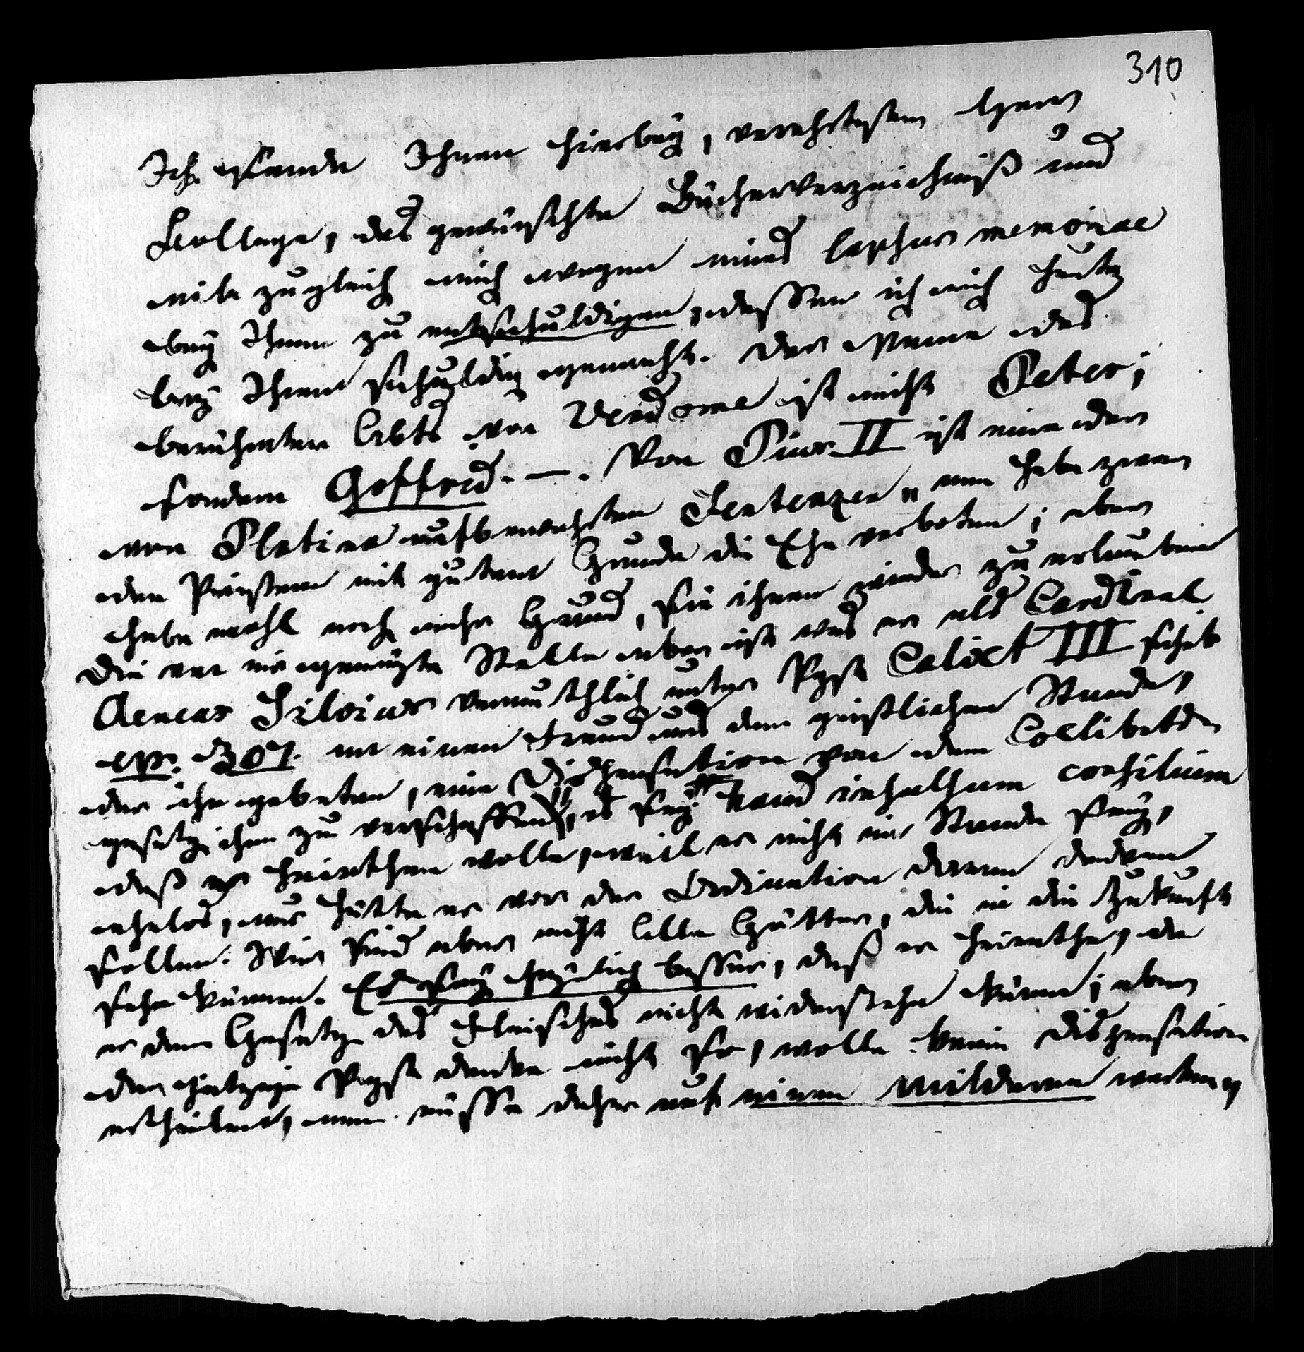 310
Ich sende Ihnen hierbey, verehrtester Herr
College, das gewünschte Bücherverzeichniß und
eile zugleich mich wegen eines lapsus memoriae
bey Ihnen zu entschuldigen, dessen ich mich heute
bey Ihnen schuldig gemacht. Der Name des
berühmten Abts von Vendome ist nicht Peter,
sondern Goffred. —. Von Pius II ist eine der
von Platina aufbewahrten Sentenzen „man habe zwar
den Priestern mit gutem Grunde die Ehe verboten; aber
habe wohl noch mehr Grund, sie ihnen wieder zu erlauben"
Die mir eigentl. Stelle aber ist was er als Cardinal
Aeneas Silvius vermuthlich unter Pabst Calixt III schrieb
ep. 307. an einen Freund aus dem geistlichen Stande,
der ihn gebeten, eine Dispensation von dem Coelibats
gesetz ihm zu verschaffen, „es sey haud insultum consilium
daß er heirathen wolle, weil er nicht im Stande sey,
ehelos, nur hätte er vor der Ordination daran denken
sollen. Wir sind aber nicht alle Götter, die in die Zukunft
sehn können. Es sey freylich besser, daß er heirathe, da
er dem Gesetz des Fleisches nicht widerstehn könne; aber
der jetzige Pabst denke nicht so, wolle keine Dispensation
ertheilen, man müsse daher auf einen mildern warten„